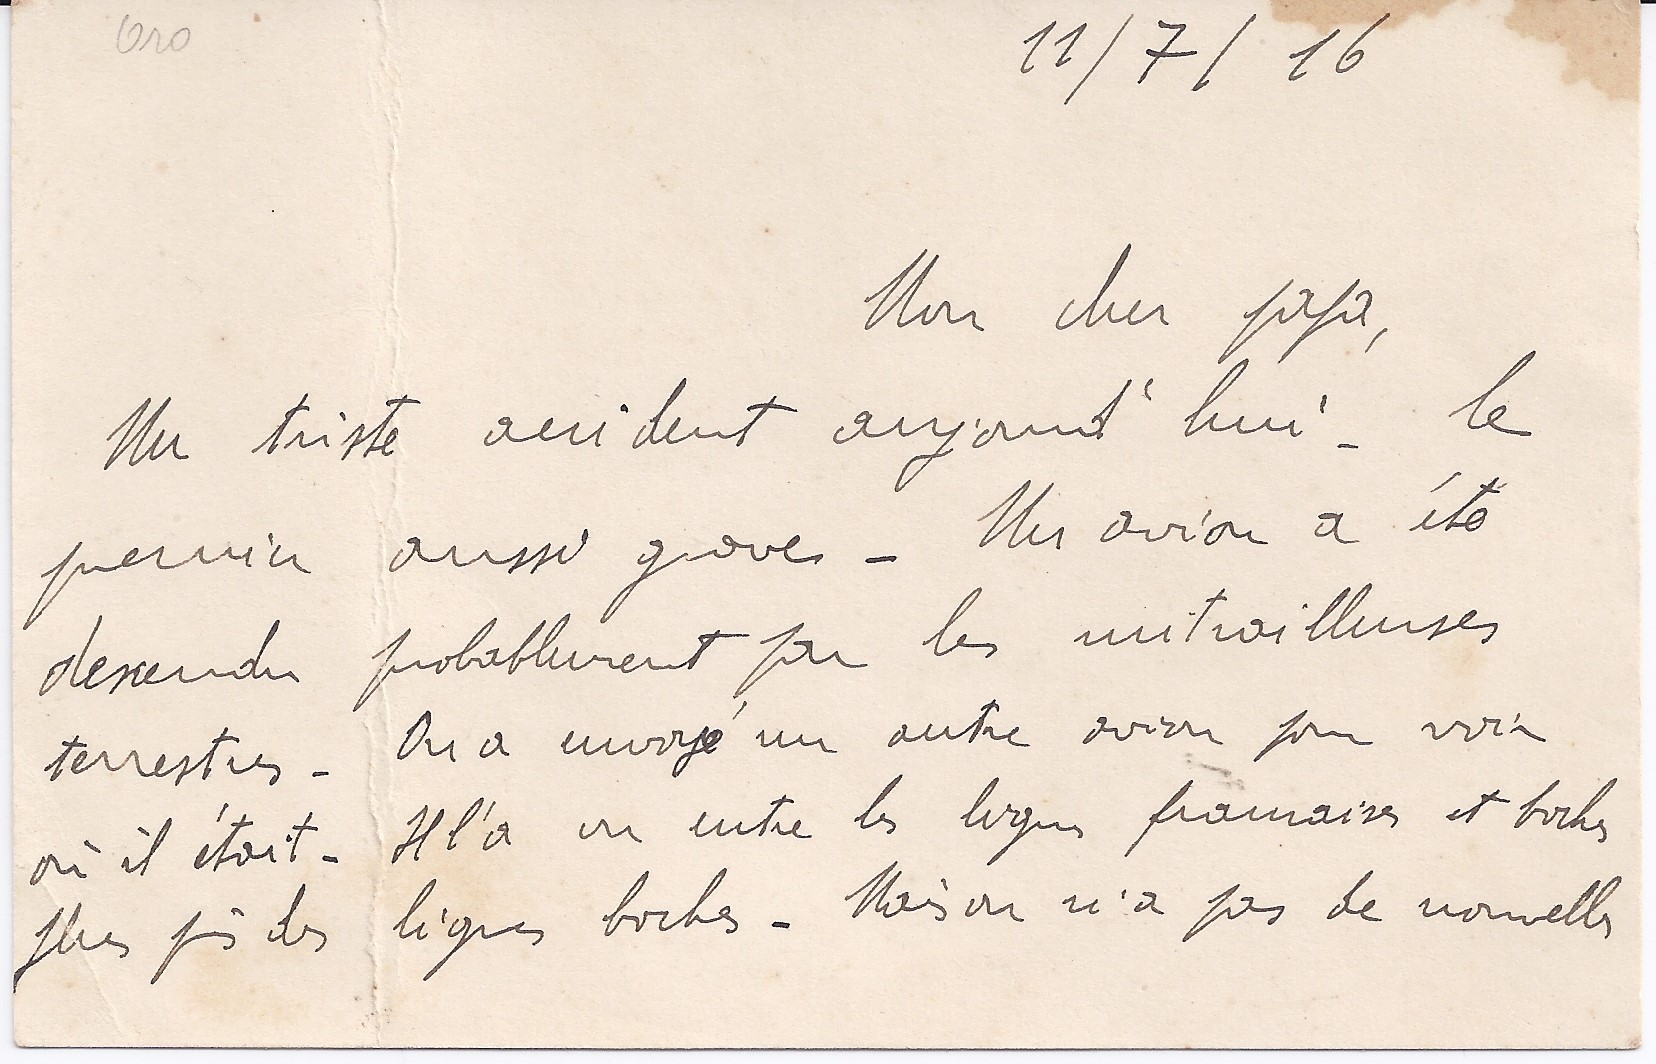 11/7/16
Mon cher papa,
Un triste accident aujourd'hui - le
premier aussi grave - Un avion a été
descendu probablement par les mitrailleuses
terrestres - On a envoyé un autre avion pour voir
où il était - Il l'a vu entre les lignes francaises et boches
plus près des lignes boches - Mais on n'a pas de nouvelles